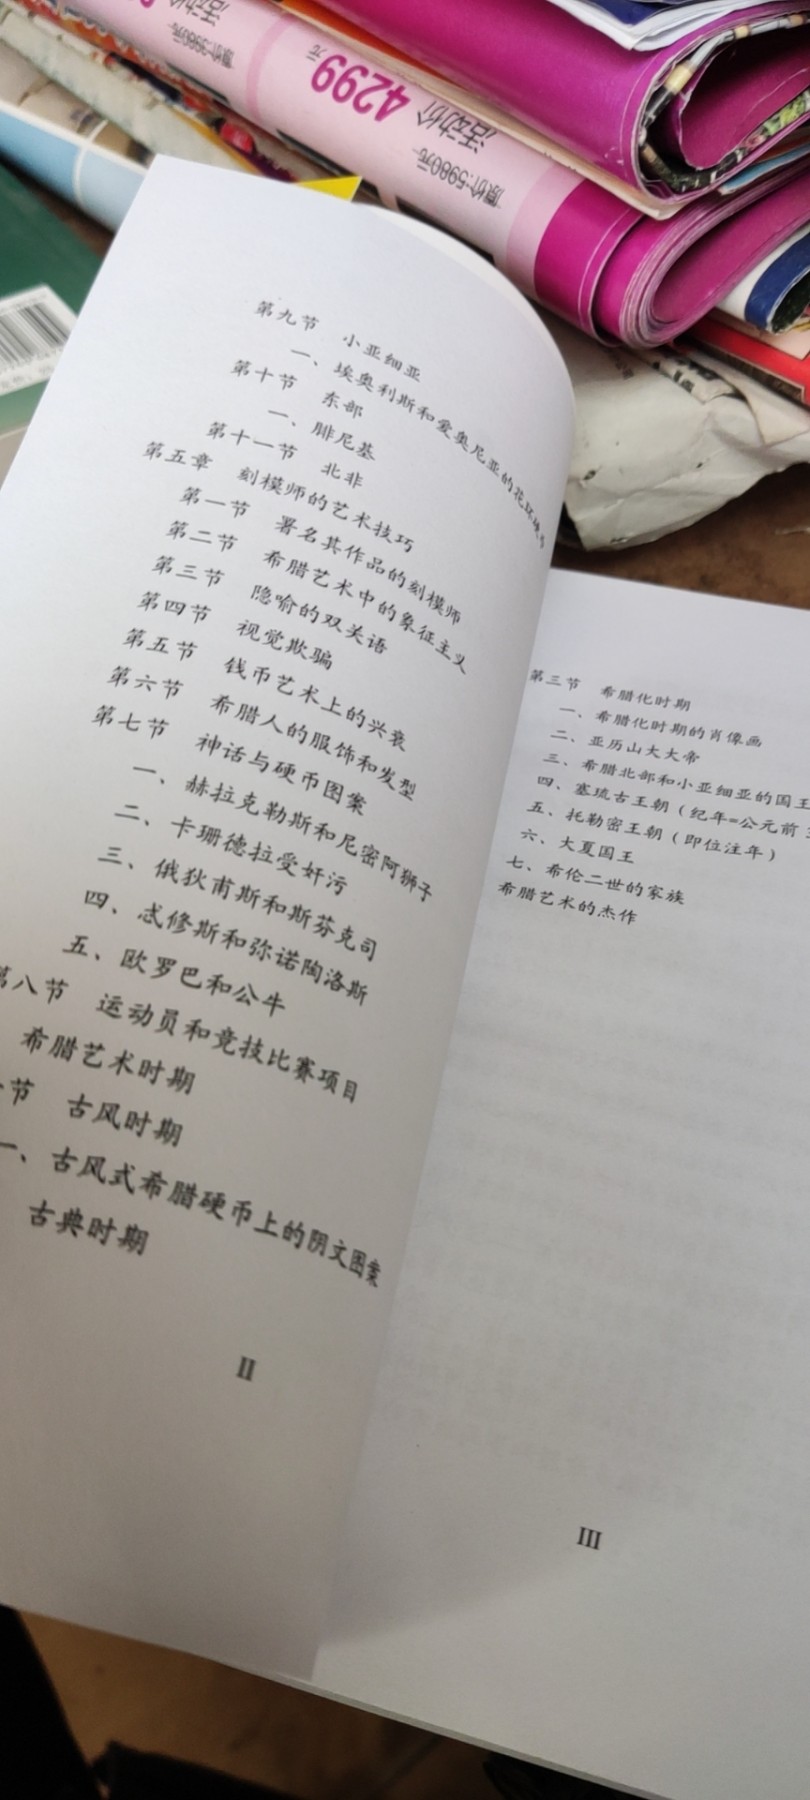 4299
元
活动价
原价:5980元
活动价
原价:3980元
第九节 小亚细亚
一、埃奥利斯和爱奥尼亚的花环硬币
第十节 东部
一、腓尼基
第十一节 北非
第五章 刻模师的艺术技巧
第一节 署名其作品的刻模师
第二节 希腊艺术中的象征主义
第三节 隐喻的双关语
第四节 视觉欺骗
第五节 钱币艺术上的兴衰
第六节 希腊人的服饰和发型
第七节 神话与硬币图案
一、赫拉克勒斯和尼密阿狮子
二、卡珊德拉受奸污
三、俄狄甫斯和斯芬克司
四、忒修斯和弥诺陶洛斯
五、欧罗巴和公牛
第八节 运动员和竞技比赛项目
希腊艺术时期
节 古风时期
一、古风式希腊硬币上的阴文图案
古典时期
II
第三节 希腊化时期
一、希腊化时期的肖像画
二、亚历山大大帝
三、希腊北部和小亚细亚的国王
四、塞琉古王朝（纪年=公元前
五、托勒密王朝（即位注年）
六、大夏国王
七、希伦二世的家族
希腊艺术的杰作
III